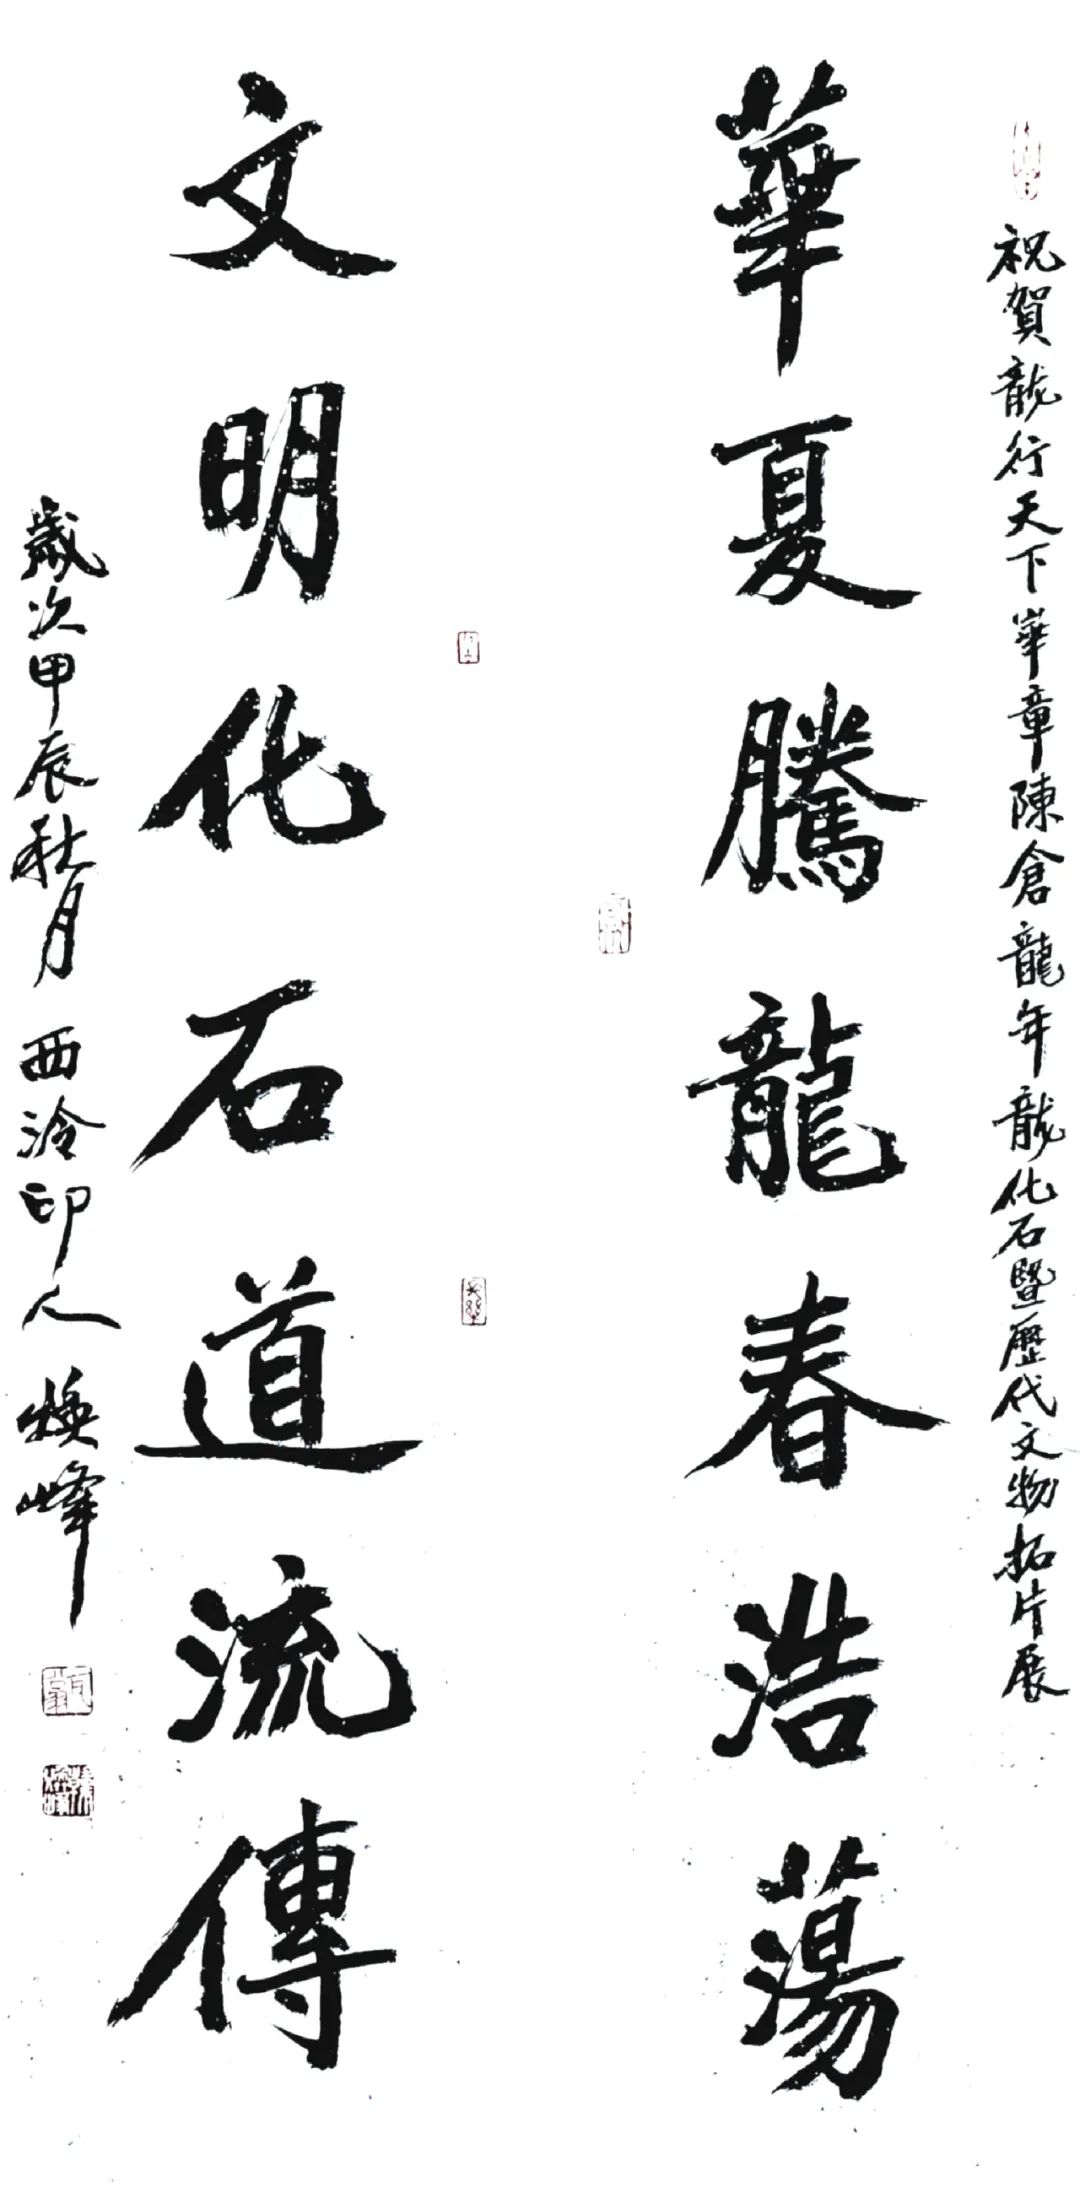 祝賀龍行天下華章陳倉龍年龍化石暨歷代文物拓片展
華夏騰龍春浩蕩
文明化石道流傳
歲次甲辰秋月西泠印人煥峰